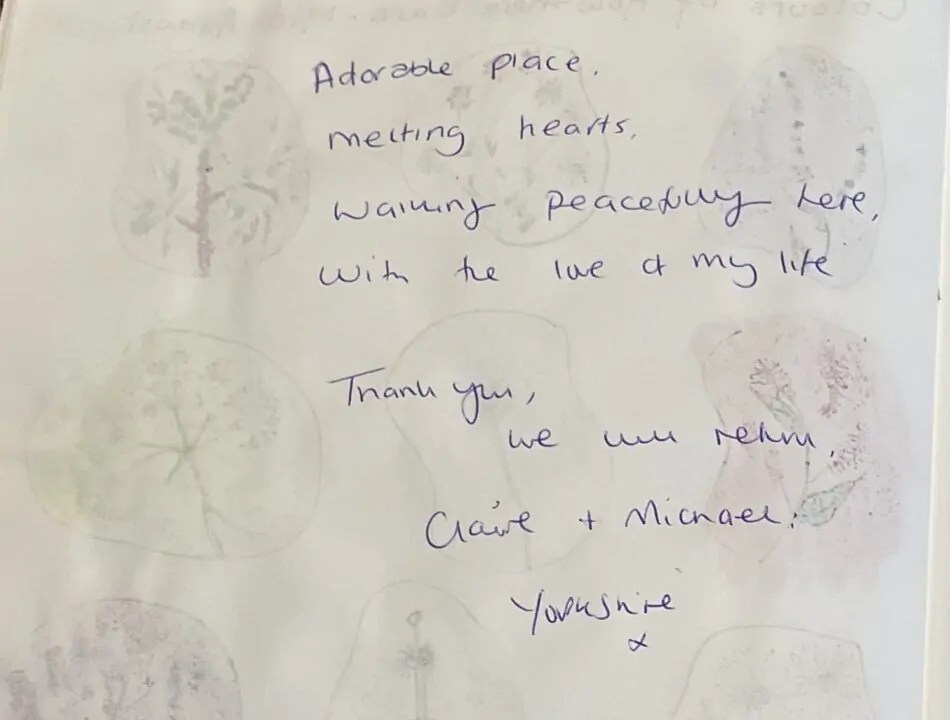 Adorable place.
melting hearts.
Walking peacefully here,
With the love of my life
Thank you,
we will return.
Claire + Michael.
Yorkshire
x